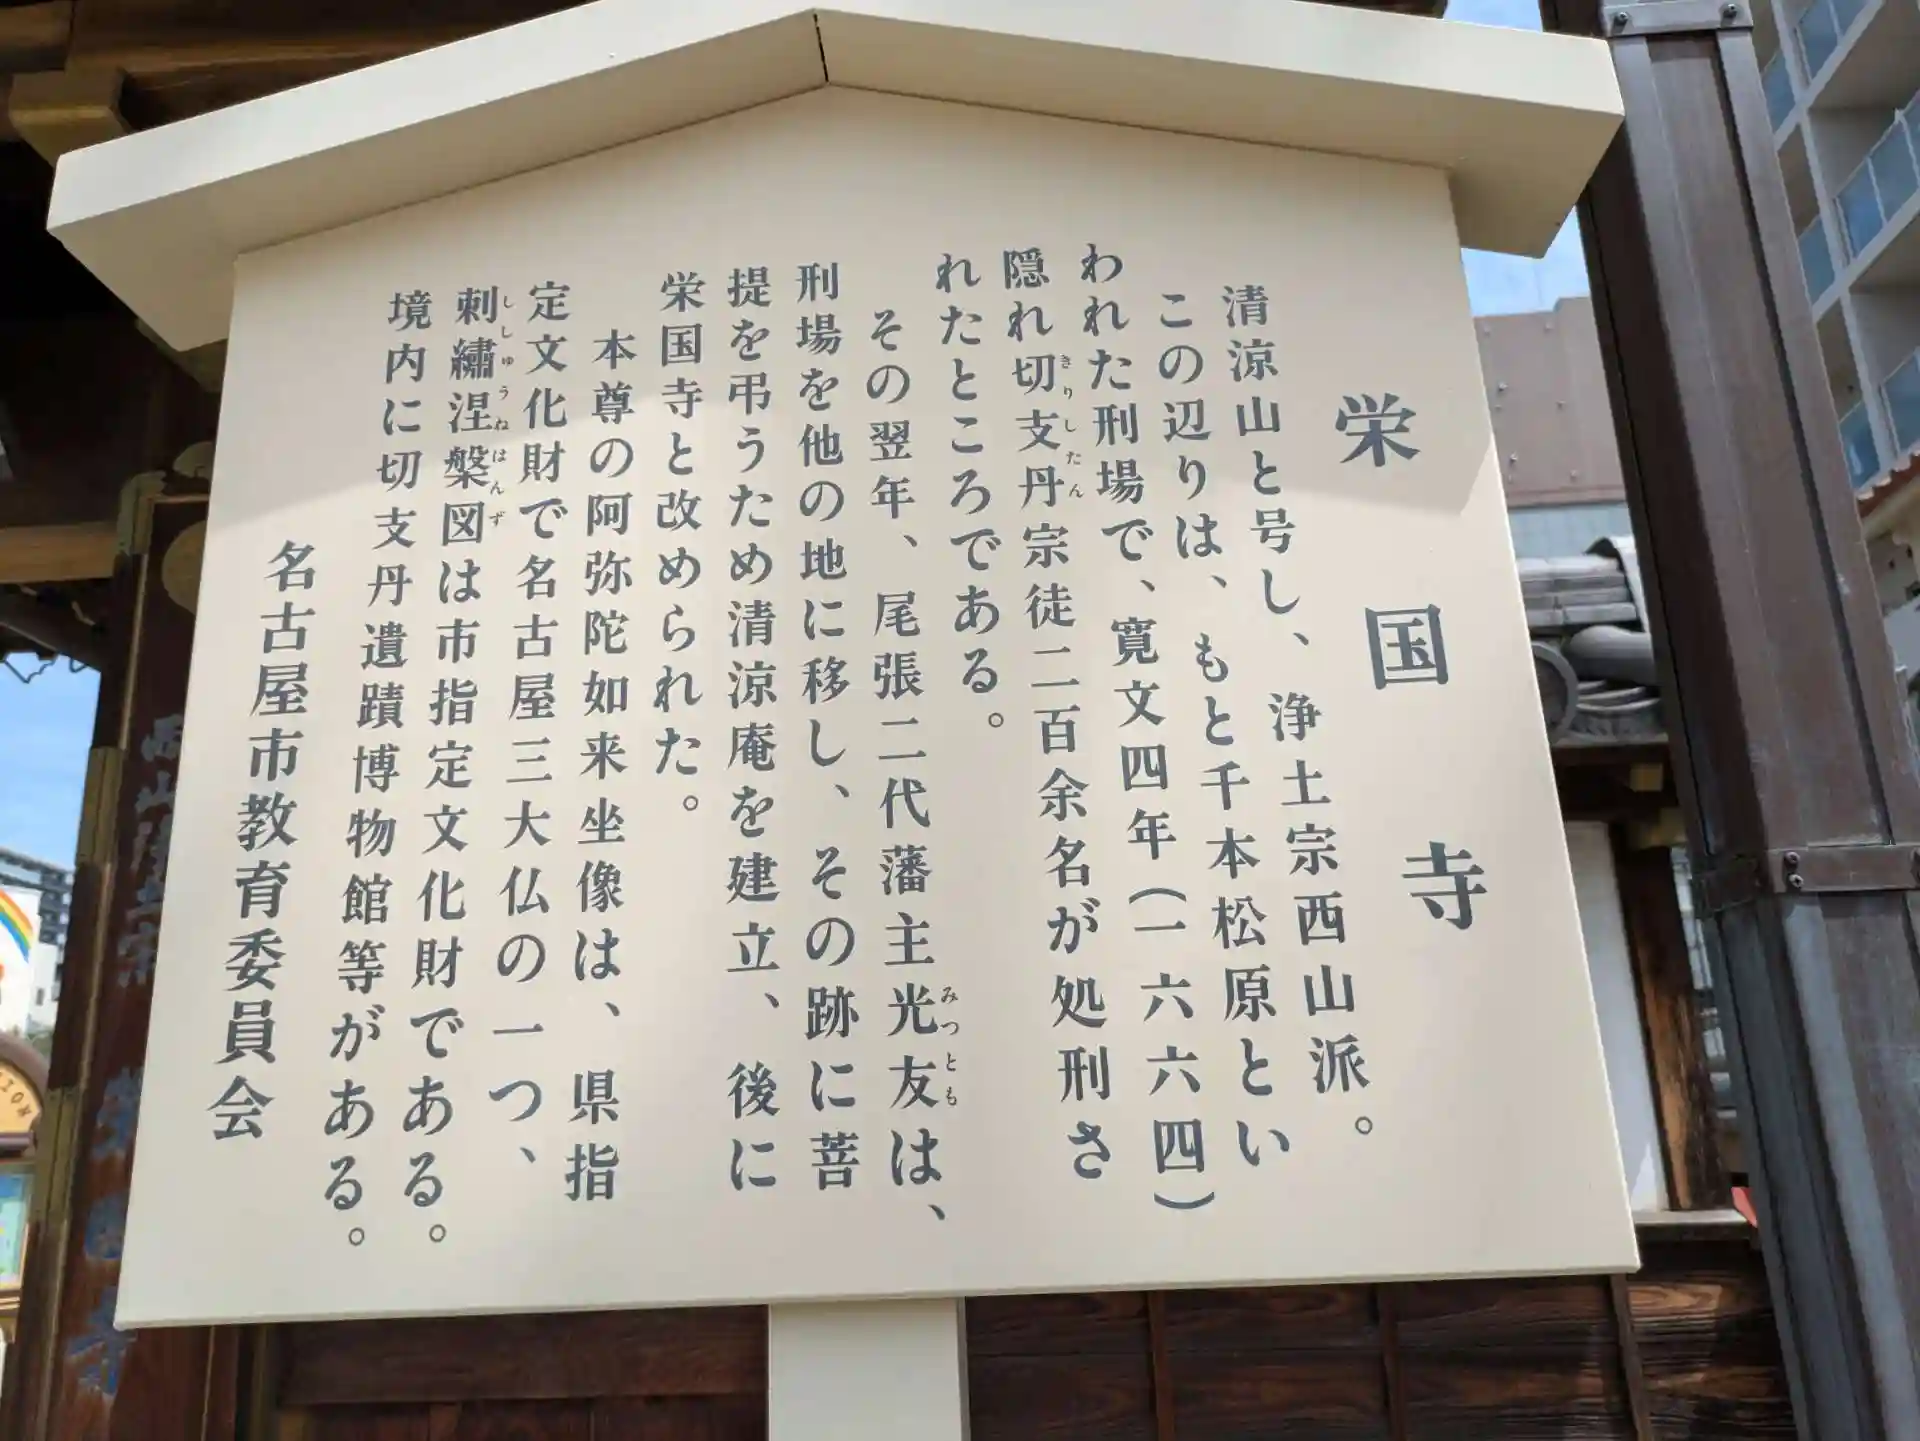 栄国寺
清涼山と号し、浄土宗西山派。
この辺りは、もと千本松原とい
われた刑場で、寛文四年(一六六四)
隠れ切支丹宗徒二百余名が処刑さ
れたところである。
その翌年、尾張二代藩主光友は、
刑場を他の地に移し、その跡に菩
提を弔うため清涼庵を建立、後に
栄国寺と改められた。
本尊の阿弥陀如来坐像は、県指
定文化財で名古屋三大仏の一つ、
刺繡涅槃図は市指定文化財である。
境内に切支丹遺蹟博物館等がある。
名古屋市教育委員会
きりしたん
みつとも
ししゅうねはんず